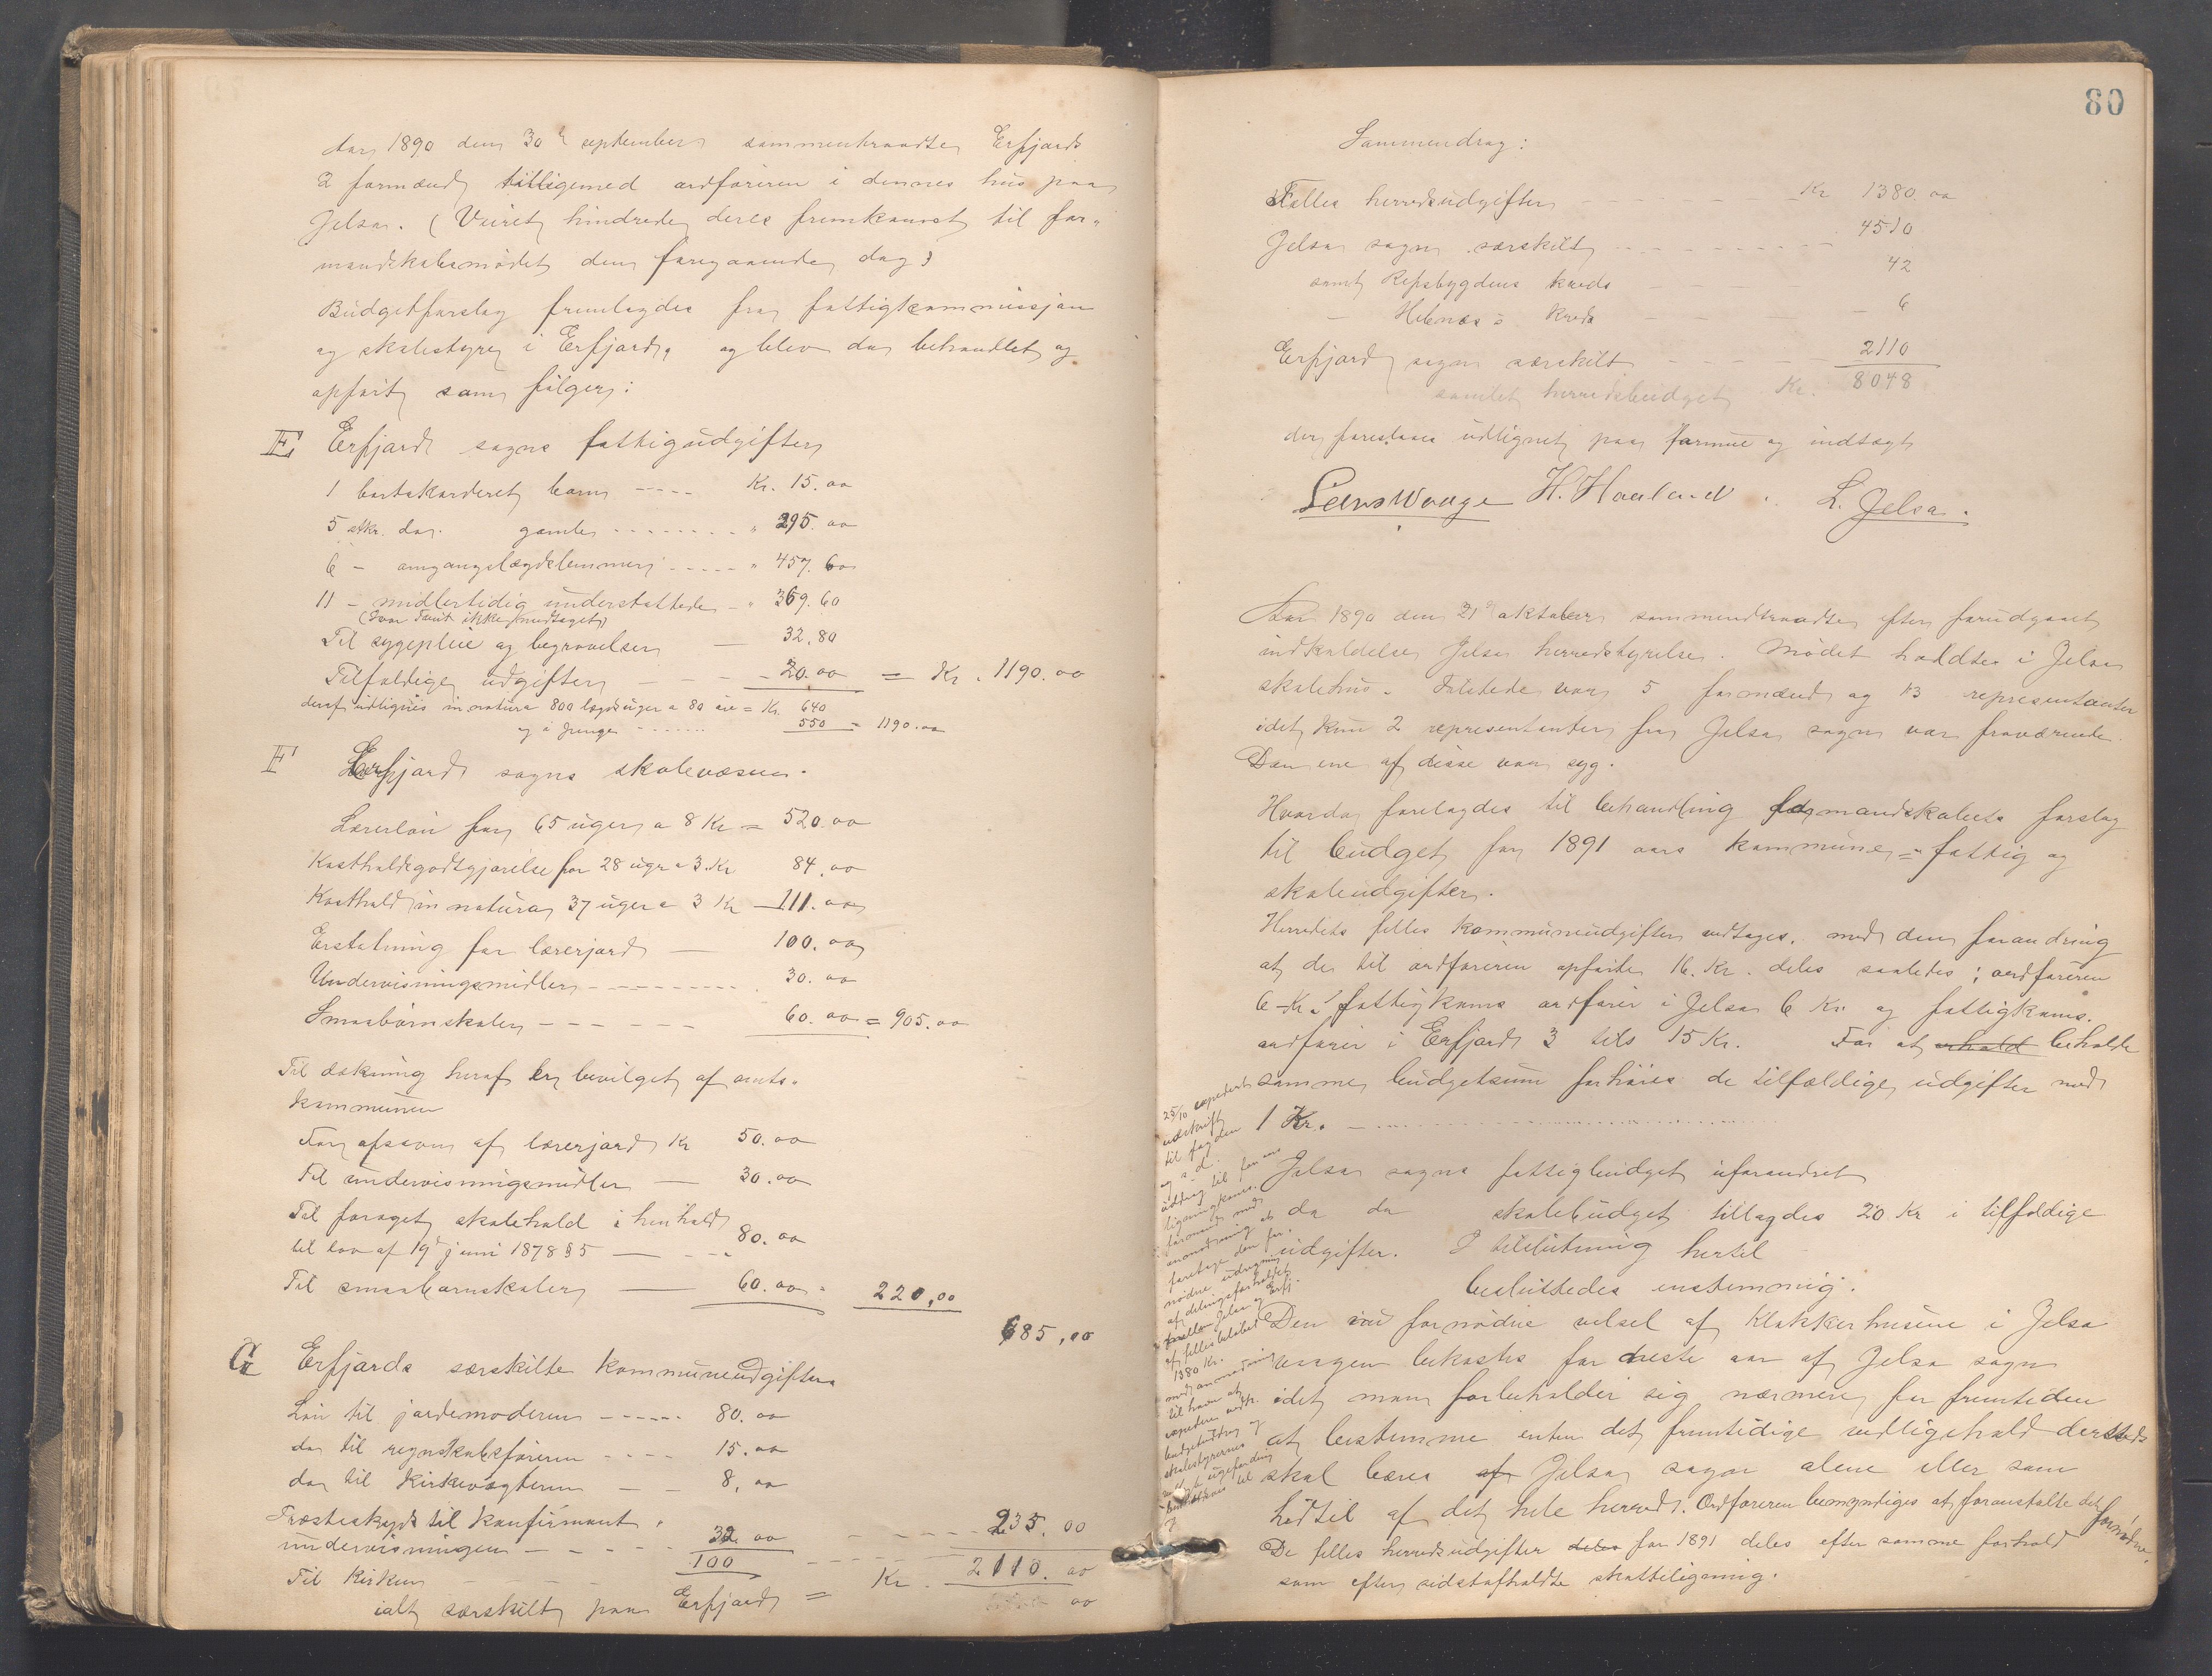 Aar 1890 den 30te september sammentraadte Erfjords
2 formænd tilligemed ordføreren i dennes hus paa
Jelsa. (Veiret hindrede deres fremkomst til for-
mandskabsmødet den foregaaende dag)
Budgetforslag fremlagdes fra fattigkommissjon
og skolestyre i Erfjord, og blev da behandlet og
opført som følger:
E Erfjord sogns fattigudgifter
1 bortakorderet barn ---- Kr. 15.00
5 stkr. do. gamle ------- " 295.00
6 - omgangslægdslemmer ----- " 457.60
11 - midlertidig understøttede - " 369.60
(Ivar Tveit ikke medtaget)
Til sygepleie og begravelser — 32.80
Tilfældige udgifter - - - - 20.00 = Kr. 1190.00
deraf udlignes in natura 800 lægdsuger a 80 øre = Kr. 640
og i Penge ------- 550 = 1190.00
F Erfjord sogns skolevæsen.
Lærerløn for 65 uger a 8 Kr = 520.00
Kostholdsgodtgjørelse for 28 uger a 3 Kr 84.00
Kosthold in natura 37 uger a 3 Kr — 111.00
Erstatning for lærerjord — 100.00
Undervisningsmidler --------- 30.00
Smaabørnskolen - - - - - - 60.00 = 905.00
Til dækning heraf er bevilget af amts-
kommunen
For afsavn af lærerjord Kr 50.00
Til undervisningsmidler — 30.00
Til forøget skolehold i henhold
til lov af 19de juni 1878 § 5 — - - 80.00
Til smaabarnskolen — 60.00 = 220,00
685,00
G Erfjords særskilte kommuneudgifter
Løn til jordemoderen ------ 80.00
do til regnskabsføreren - - - - 15.00
do til kirkevægteren - - 8,00
Præsteskyds til konfirmant-
undervisningen - - - - - - 32.00 - - - - - 235.00
Til kirken - - - 100 - - - - - 2110.00
ialt særskilt paa Erfjord = Kr. 00
80
Sammendrag:
Fælles herredsudgifter - - - - - - - Kr 1380.00
Jelsa sogn særskilt - - - - - - - - - 4510
samt Ropsbygdens kreds - - - - 42
- Hebnes's kreds - - - - - 6
Erfjord sogn særskilt - - - - - 2110
samlet herredsbudget Kr. 8048
der foreslaaes udlignet paa formue og indtægt
Lars Waage H. Haaland. L. Jelsa.
Aar 1890 den 21de oktober sammentraadte efter forudgaaet
indkaldelse Jelsa herredstyrelse. Mødet holdtes i Jelsa
skolehus. Tilstede var 5 formænd og 13 representanter
idet kun 2 representanter fra Jelsa sogn var fraværende.
Den ene af disse var syg.
Hvorda forelagdes til behandling formandskabets forslag
til budget for 1891 aars kommune-fattig og
skoleudgifter.
Herredets fælles kommuneudgifter vedtages, med den forandring
at de til ordføreren opførte 16. Kr. deles saaledes: ordføreren
6 Kr. fattigkoms ordfører i Jelsa 6 Kr. og fattigkoms.
ordfører i Erfjord 3 tils 15 Kr. For at beholde
samme budgetsum forhøies de tilfældige udgifter med
1 Kr. - - - - - - - - - - - - -
Jelsa sogns fattigbudget uforandret
do do skolebudget tillagdes 20 Kr i tilfældige
udgifter. I tilslutning hertil
besluttedes enstemmig.
Den nu fornødne veksel af Klokkerhusene i Jelsa
bekostes for neste aar af Jelsa sogn
idet man forbeholder sig nærmere for fremtiden
at bestemme enten det fremtidige vedligehold dersteds
skal bæres af Jelsa sogn alene eller som
hidtil af det hele herred. Ordføreren bemyndiges at foranstalte det fornødne.
De fælles herredsudgifter deles for 1891 deles efter samme forhold
som efter sidstafholdte skatteligning.
25/10 expedert
udskrift
til fogden
og s. d.
uddrag til for
ligningskoms.
formænd med
anmodning at
foretage den for-
nødne udregning
af delingsforholdet
Jelsa og Erfj.
af fælles beløbet
1380 Kr.
med anmodning
til ham at
budgetuddrag og
skolestyrernes